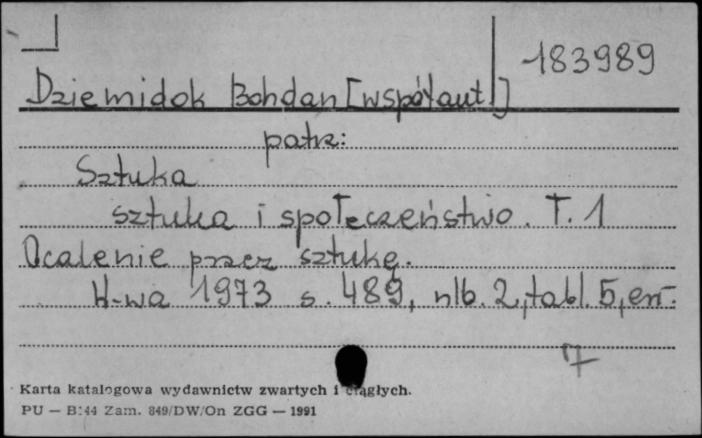 183989
Dziemidok Bohdan [współaut.]
patrz:
Sztuka
sztuka i społeczeństwo. T. 1
Ocalenie przez sztukę.
W-wa 1973 s. 489, nlb. 2, tabl. 5, err.
7
Karta katalogowa wydawnictw zwartych i ciągłych.
PU — B:44 Zam. 849/DW/On ZGG — 1991